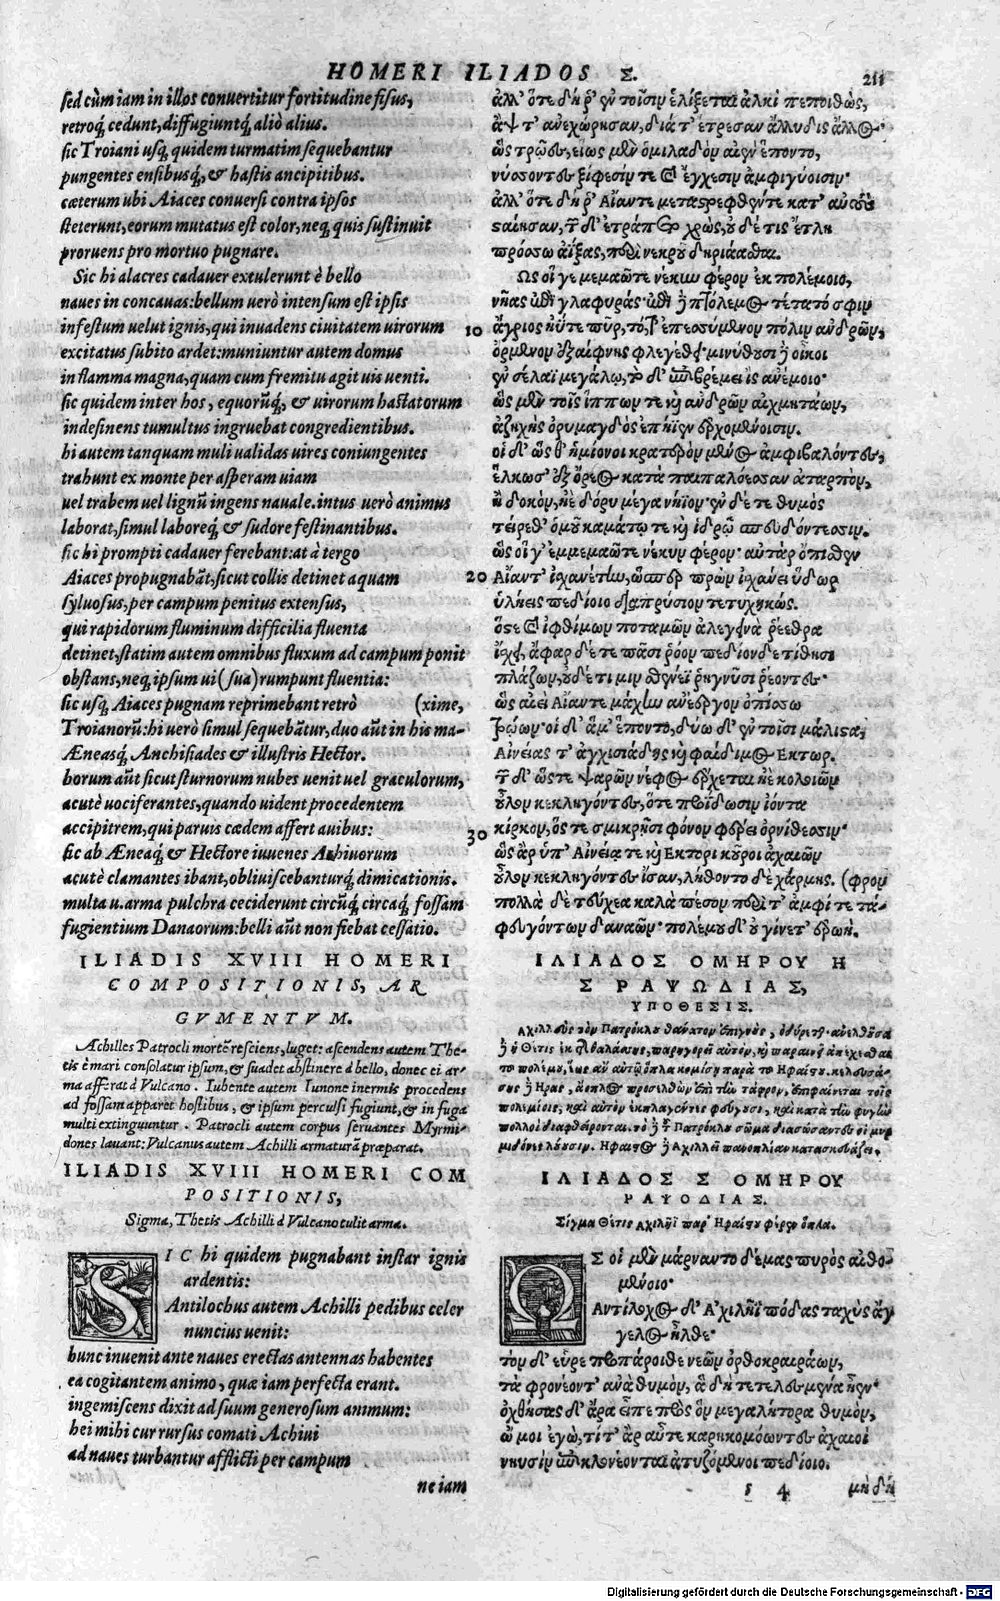 HOMERI ILIADOS Σ. 211
sed cùm iam in illos conuertitur fortitudine fisus,
retroq́; cedunt, diffugiuntq́; aliò alius.
sic Troiani usq; quidem turmatim sequebantur
pungentes ensibusq́;, & hastis ancipitibus.
cæterum ubi Aiaces conuersi contra ipsos
steterunt, eorum mutatus est color, neq; quis sustinuit
proruens pro mortuo pugnare.
Sic hi alacres cadauer extulerunt è bello
naues in concauas: bellum uerò intensum est ipsis
infestum uelut ignis, qui inuadens ciuitatem uirorum 10
excitatus subito ardet: muniuntur autem domus
in flamma magna, quam cum fremitu agit uis uenti.
sic quidem inter hos, equorũq́;, & uirorum hastatorum
indesinens tumultus ingruebat congredientibus.
hi autem tanquam muli ualidas uires coniungentes
trahunt ex monte per asperam uiam
uel trabem uel lignũ ingens nauale. intus uerò animus
laborat, simul laboreq́; & sudore festinantibus.
sic hi prompti cadauer ferebant: at à tergo
Aiaces propugnabãt, sicut collis detinet aquam 20
syluosus, per campum penitus extensus,
qui rapidorum fluminum difficilia fluenta
detinet, statim autem omnibus fluxum ad campum ponit
obstans, neq; ipsum ui (sua) rumpunt fluentia:
sic usq; Aiaces pugnam reprimebant retrò (xime,
Troianorũ: hi uerò simul sequebãtur, duo aũt in his ma-
Æneasq́; Anchisiades & illustris Hector.
horum aũt sicut sturnorum nubes uenit uel graculorum,
acutè uociferantes, quando uident procedentem
accipitrem, qui paruis cædem affert auibus: 30
sic ab Æneaq́; & Hectore iuuenes Achiuorum
acutè clamantes ibant, obliuiscebanturq́; dimicationis.
multa u. arma pulchra ceciderunt circũq́; circaq́; fossam
fugientium Danaorum: belli aũt non fiebat cessatio.
ILIADIS XVIII HOMERI
COMPOSITIONIS, AR
GVMENTVM.
Achilles Patrocli mortẽ resciens, luget: ascendens autem The-
tis è mari consolatur ipsum, & suadet abstinere à bello, donec ei ar-
ma afferat à Vulcano. Iubente autem Iunone inermis procedens
ad fossam apparet hostibus, & ipsum perculsi fugiunt, & in fuga
multi extinguuntur. Patrocli autem corpus seruantes Myrmi-
dones lauant: Vulcanus autem Achilli armaturã præparat.
ILIADIS XVIII HOMERI COM
POSITIONIS,
Sigma, Thetis Achilli à Vulcano tulit arma.
SIC hi quidem pugnabant instar ignis
ardentis:
Antilochus autem Achilli pedibus celer
nuncius uenit:
hunc inuenit ante naues erectas antennas habentes
ea cogitantem animo, quæ iam perfecta erant.
ingemiscens dixit ad suum generosum animum:
hei mihi cur rursus comati Achiui
ad naues turbantur afflicti per campum
ne iam
ἀλλ' ὅτε δή ῥ' ἐν τοῖσιν ἑλίξεται ἀλκὶ πεποιθὼς,
ἂψ τ' ἀνεχώρησαν, διά τ' ἔτρεσαν ἄλλυδις ἄλλος·
ὣς τρῶες, εἵως μὲν ὁμιλαδὸν αἰὲν ἕποντο,
νύσσοντες ξίφεσίν τε καὶ ἔγχεσιν ἀμφιγύοισιν·
ἀλλ' ὅτε δή ῥ' Αἴαντε μεταστρεφθέντε κατ' αὐτοὺς
σταίησαν, τῶν δὲ τράπετο χρὼς, οὐδέ τις ἔτλη
πρόσσω ἀΐξας, περὶ νεκροῦ δηριάασθαι.
Ὣς οἵ γε μεμαῶτε νέκυν φέρον ἐκ πολέμοιο,
νῆας ἐπὶ γλαφυράς· ἐπὶ δὲ πτόλεμος τέτατό σφιν
ἄγριος ἠΰτε πῦρ, τό, τ' ἐπεσσύμενον πόλιν ἀνδρῶν,
ὄρμενον ἐξαίφνης φλεγέθει· μινύθουσι δὲ οἶκοι
ἐν σέλαϊ μεγάλῳ, τὸ δ' ἐπιβρέμει ἲς ἀνέμοιο·
ὣς μὲν τοῖς ἵππων τε καὶ ἀνδρῶν αἰχμητάων,
ἀζηχὴς ὀρυμαγδὸς ἐπήϊεν ἐρχομένοισιν.
οἱ δ' ὥς θ' ἡμίονοι κρατερὸν μένος ἀμφιβαλόντες,
ἕλκωσ' ἐξ ὄρεος κατὰ παιπαλόεσσαν ἀταρπὸν,
ἢ δοκὸν, ἠὲ δόρυ μέγα νήϊον· ἐν δέ τε θυμὸς
τείρεθ' ὁμοῦ καμάτῳ τε καὶ ἱδρῷ σπευδόντεσσιν.
ὣς οἵ γ' ἐμμεμαῶτε νέκυν φέρον· αὐτὰρ ὄπισθεν
Αἴαντ' ἰχανέτην, ὥσπερ πρὼν ἰχάνει ὕδωρ
ὑλήεις πεδίοιο διαπρύσιον τετυχηκώς.
ὅστε καὶ ἰφθίμων ποταμῶν ἀλεγεινὰ ῥέεθρα
ἴχει, ἄφαρ δέ τε πᾶσι ῥόον πεδίονδε τίθησι
πλάζων, οὐδέ τι μιν σθένει ῥηγνῦσι ῥέοντες·
ὣς αἰεὶ Αἴαντε μάχην ἀνέεργον ὀπίσσω
Τρώων· οἱ δ' ἅμ' ἕποντο, δύω δ' ἐν τοῖσι μάλιστα,
Αἰνείας τ' ἀγχισιάδης καὶ φαίδιμος Ἕκτωρ.
τῶν δ' ὥστε ψαρῶν νέφος ἔρχεται ἠὲ κολοιῶν
οὖλον κεκληγόντες, ὅτε προΐδωσιν ἰόντα
κίρκον, ὅς τε σμικρῇσι φόνον φέρει ὀρνίθεσσιν·
ὣς ἄρ ὑπ' Αἰνείᾳ τε καὶ Ἕκτορι κοῦροι ἀχαιῶν
οὖλον κεκληγόντες ἴσαν, λήθοντο δὲ χάρμης. (φρον
πολλὰ δὲ τεύχεα καλὰ πέσον περί τ' ἀμφί τε τά-
φευγόντων δαναῶν· πολέμου δ' οὐ γίνετ' ἐρωή.
ΙΛΙΑΔΟΣ ΟΜΗΡΟΥ Η
Σ ΡΑΨΩΔΙΑΣ,
ΥΠΟΘΕΣΙΣ.
Ἀχιλλεὺς τὸν Πατρόκλου θάνατον ἐπιγνοὺς, ὀδύρεται· ἀνελθοῦσα
δὲ ἡ Θέτις ἐκ τῆς θαλάσσης, παρηγορεῖ αὐτὸν, καὶ παραινεῖ ἀπέχεσθαι
τοῦ πολέμου, ἕως ἂν αὐτῷ ὅπλα κομίσῃ παρὰ τοῦ Ἡφαίστου. κελευσά-
σης δὲ Ἥρας, ἄοπλος προσελθὼν ἐπὶ τὴν τάφρον, ἐπιφαίνεται τοῖς
πολεμίοις, καὶ αὐτὸν ἐκπλαγέντες φεύγουσι, καὶ κατὰ τὴν φυγὴν
πολλοὶ διαφθείρονται. τὸ δὲ τοῦ Πατρόκλου σῶμα διασώσαντες οἱ μυρ
μιδόνες λούουσιν. Ἥφαιστος δὲ Ἀχιλλεῖ πανοπλίαν κατασκευάζει.
ΙΛΙΑΔΟΣ Σ ΟΜΗΡΟΥ
ΡΑΨΟΔΙΑΣ.
Σίγμα Θέτις Ἀχιλῆϊ παρ' Ἡφαίστου φέρεν ὅπλα.
ΩΣ οἱ μὲν μάρναντο δέμας πυρὸς αἰθο-
μένοιο·
Ἀντίλοχος δ' Ἀχιλῆϊ πόδας ταχὺς ἄγ
γελος ἦλθε·
τὸν δ' εὗρε προπάροιθε νεῶν ὀρθοκραιράων,
τὰ φρονέοντ' ἀνὰ θυμὸν, ἃ δὴ τετελεσμένα ἦεν·
ὀχθήσας δ' ἄρα εἶπε πρὸς ὃν μεγαλήτορα θυμὸν,
ὤ μοι ἐγὼ, τί τ' ἂρ αὖτε καρηκομόωντες ἀχαιοὶ
νηυσὶν ἐπικλονέονται ἀτυζόμενοι πεδίοιο.
s 4 μὴ δή
Digitalisierung gefördert durch die Deutsche Forschungsgemeinschaft - DFG